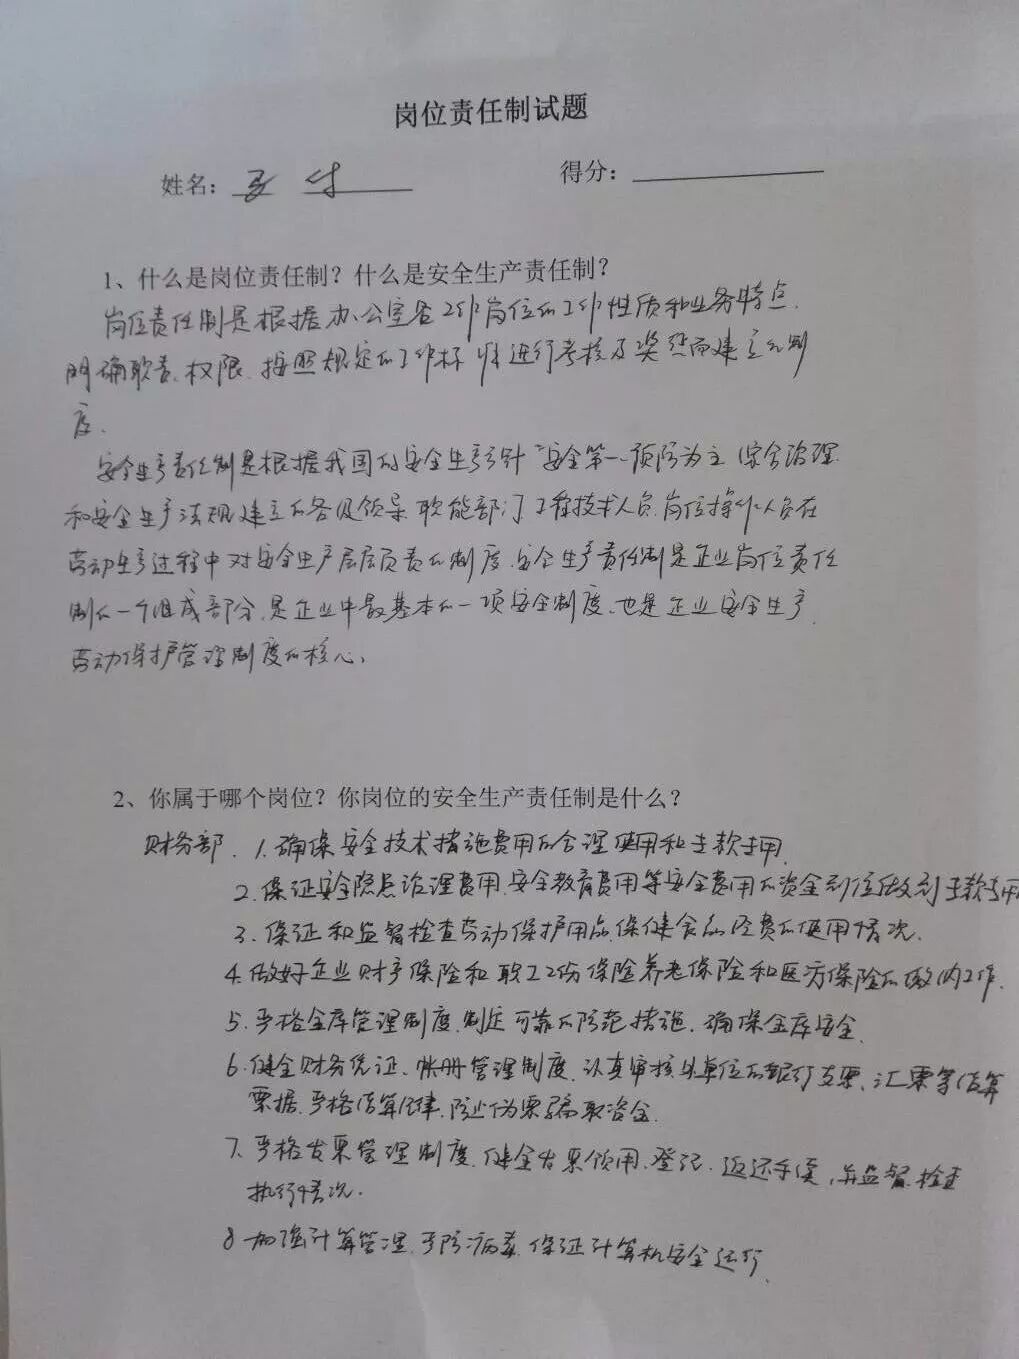 岗位责任制试题
姓名： 得分：
1、什么是岗位责任制？什么是安全生产责任制？
岗位责任制是根据办公室各工作岗位的工作性质和业务特点，
明确职责、权限、按照规定的工作标准进行考核及奖惩而建立的制
度。
安全生产责任制是根据我国的安全生产方针"安全第一、预防为主 综合治理
和安全生产法规建立的各级领导 职能部门 工程技术人员 岗位操作人员在
劳动生产过程中对安全生产层层负责的制度。安全生产责任制是企业岗位责任
制的一个组成部分，是企业中最基本的一项安全制度，也是企业安全生产
劳动保护管理制度的核心。
2、你属于哪个岗位？你岗位的安全生产责任制是什么？
财务部．1.确保安全技术措施费用的合理使用和专款专用
2.保证安全隐患治理费用、安全教育费用等安全费用的资金到位做到专款专用
3.保证和监督检查劳动保护用品保健食品经费的使用情况．
4.做好企业财产保险和职工 保险养老保险和医疗保险的缴纳工作．
5.严格金库管理制度，制定可靠的防范措施，确保金库安全．
6.健全财务凭证、帐册管理制度，认真审核外单位的银行支票、汇票等结算
票据，严格结算纪律，防止伪票骗取资金．
7.严格发票管理制度，健全发票领用、登记、返还手续，并监督检查
执行情况．
8 加强计算管理，预防病毒，保证计算机安全运行．